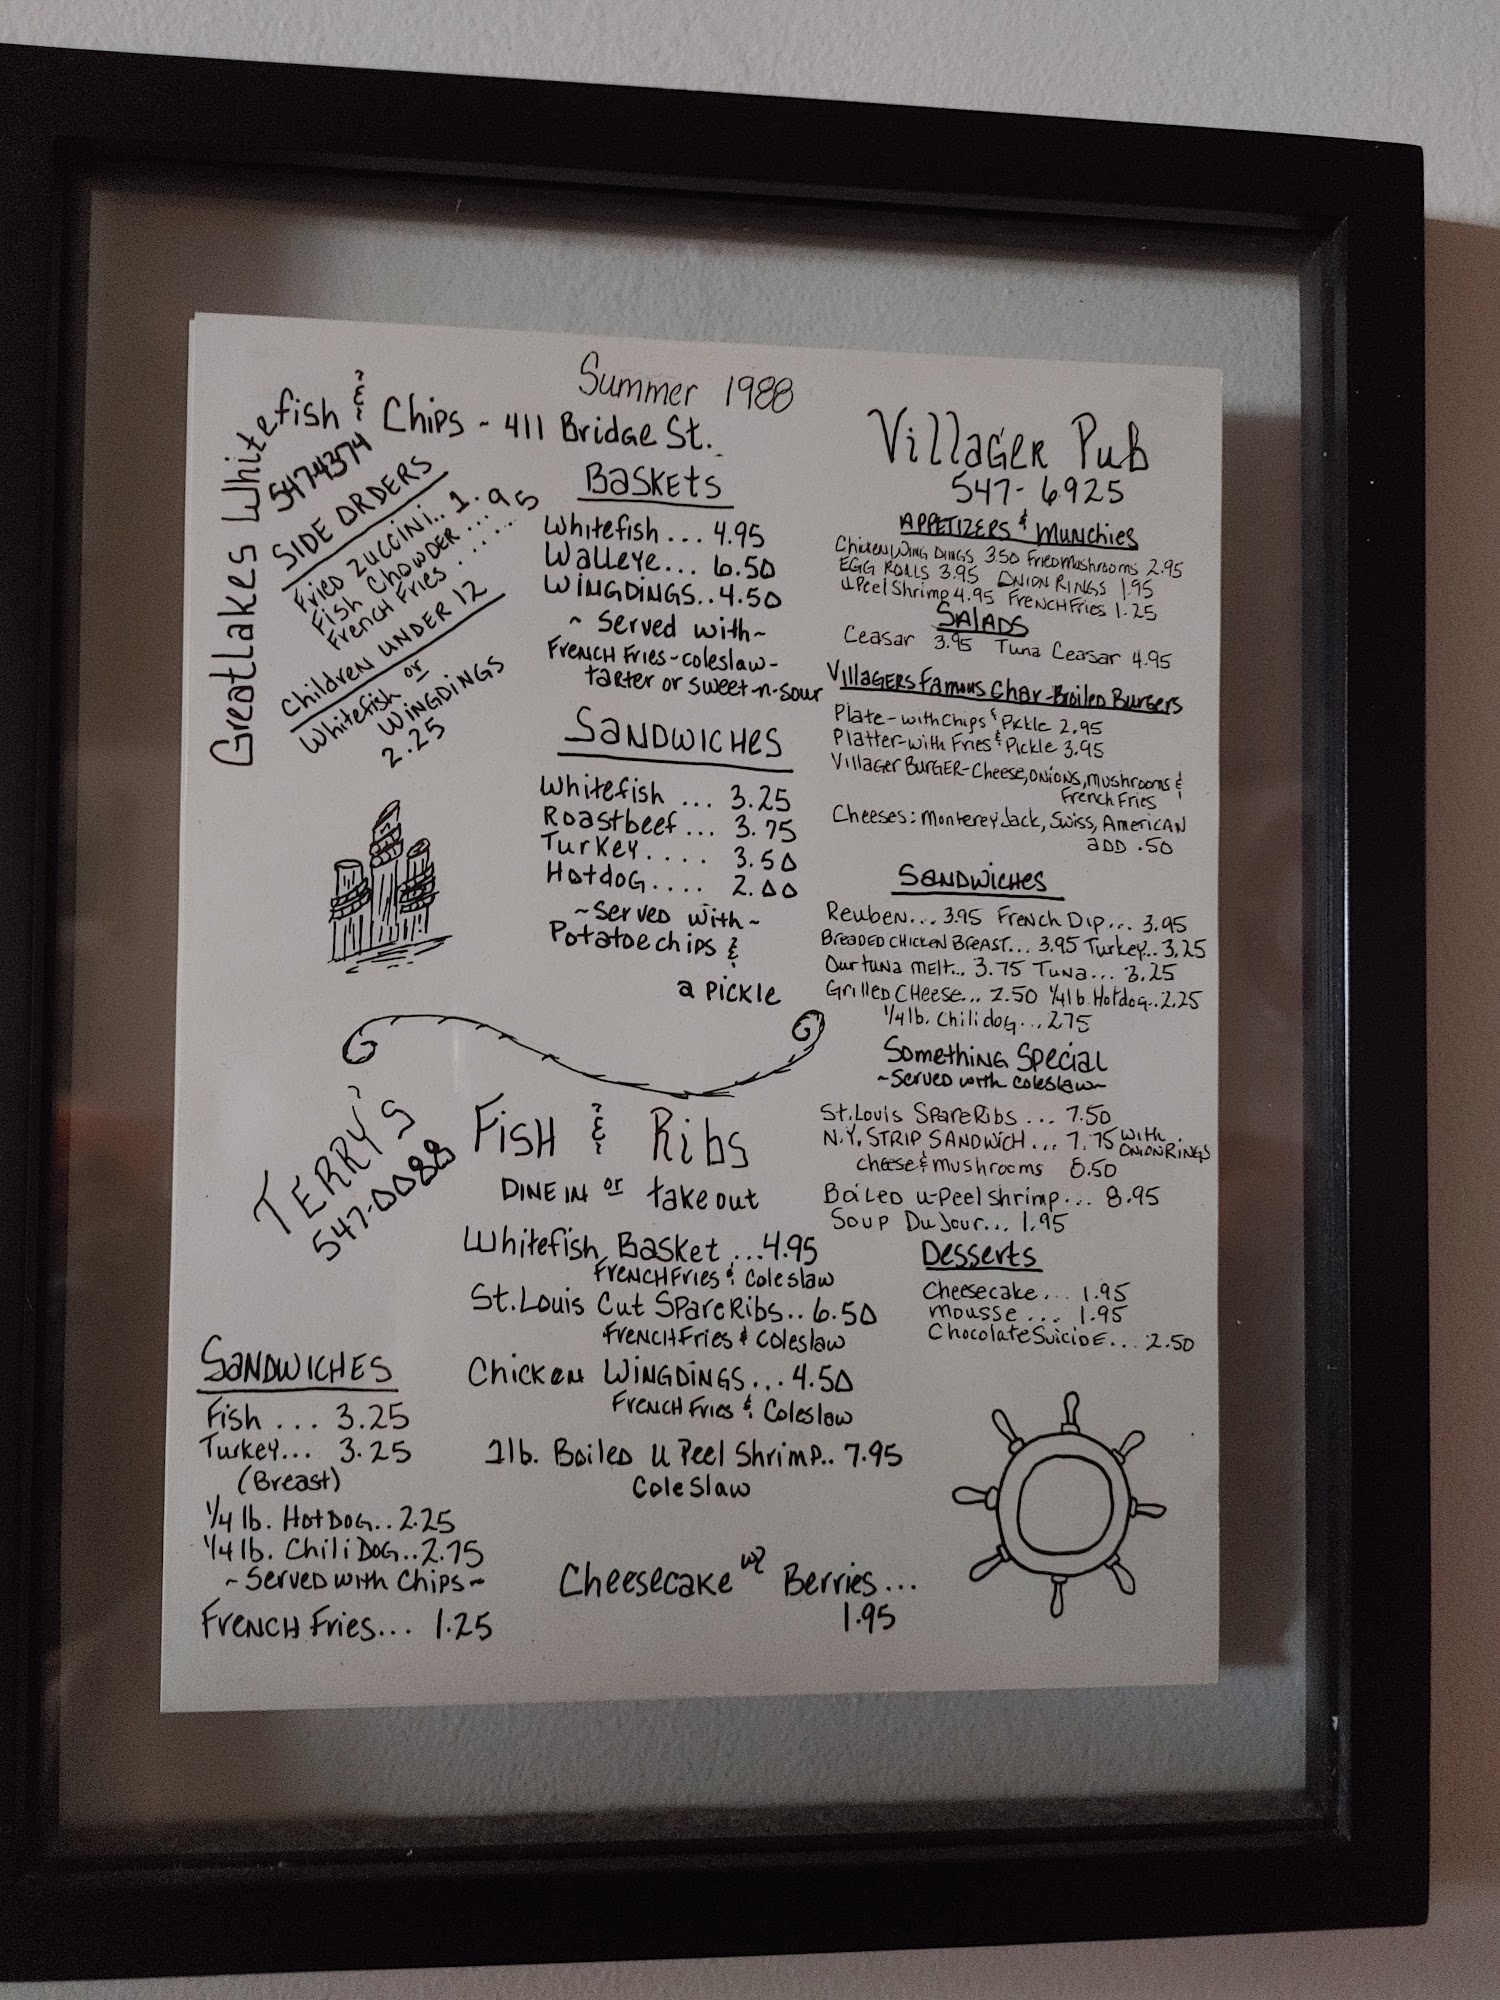 Summer 1988
Great Lakes Whitefish & Chips - 411 Bridge St.
547-4374
SIDE ORDERS
Fried Zuccini.. 1.95
Fish Chowder ...
French Fries .....
Children UNDER 12
Whitefish or
WINGDINGS
2.25
BASKETS
Whitefish... 4.95
Walleye... 6.50
WINGDINGS.. 4.50
~ Served with ~
FRENCH Fries - coleslaw -
tarter or sweet-n-sour
SANDWICHES
Whitefish ... 3.25
Roastbeef... 3.75
Turkey.... 3.50
Hotdog.... 2.00
~ Served with ~
Potatoe chips &
a PICKLE
Villager Pub
547-6925
APPETIZERS & Munchies
Chicken Wing Dings 3.50 Fried Mushrooms 2.95
EGG ROLLS 3.95 ONION RINGS 1.95
u Peel Shrimp 4.95 FRENCH Fries 1.25
SALADS
Ceasar 3.95 Tuna Ceasar 4.95
Villagers Famous Char-Broiled Burgers
Plate - with Chips & Pickle 2.95
Platter - with Fries & Pickle 3.95
Villager BURGER - Cheese, ONIONS, mushrooms &
French Fries
Cheeses: Monterey Jack, Swiss, AMERICAN
ADD .50
SANDWICHES
Reuben... 3.95 French Dip... 3.95
BREADED CHICKEN BREAST... 3.95 Turkey... 3.25
Our tuna melt... 3.75 Tuna... 3.25
Grilled Cheese... 2.50 1/4 lb. Hotdog.. 2.25
1/4 lb. Chili dog... 2.75
Something Special
~ Served with coleslaw ~
St. Louis Spare Ribs ... 7.50
N.Y. STRIP SANDWICH ... 7.75 with ONION RINGS
cheese & mushrooms 8.50
Boiled u-Peel shrimp... 8.95
Soup Du Jour... 1.95
Desserts
Cheesecake... 1.95
Mousse ... 1.95
Chocolate Suicide... 2.50
TERRY'S
547-0088
FISH & Ribs
DINE IN or take out
Whitefish Basket ...4.95
FRENCH Fries & Coleslaw
St. Louis Cut Spare Ribs.. 6.50
FRENCH Fries & Coleslaw
Chicken WINGDINGS... 4.50
FRENCH Fries & Coleslaw
1 lb. Boiled U Peel Shrimp.. 7.95
Cole Slaw
Cheesecake w/ Berries...
1.95
SANDWICHES
Fish ... 3.25
Turkey... 3.25
(Breast)
1/4 lb. Hot Dog.. 2.25
1/4 lb. Chili Dog.. 2.75
~ Served with Chips ~
FRENCH Fries... 1.25